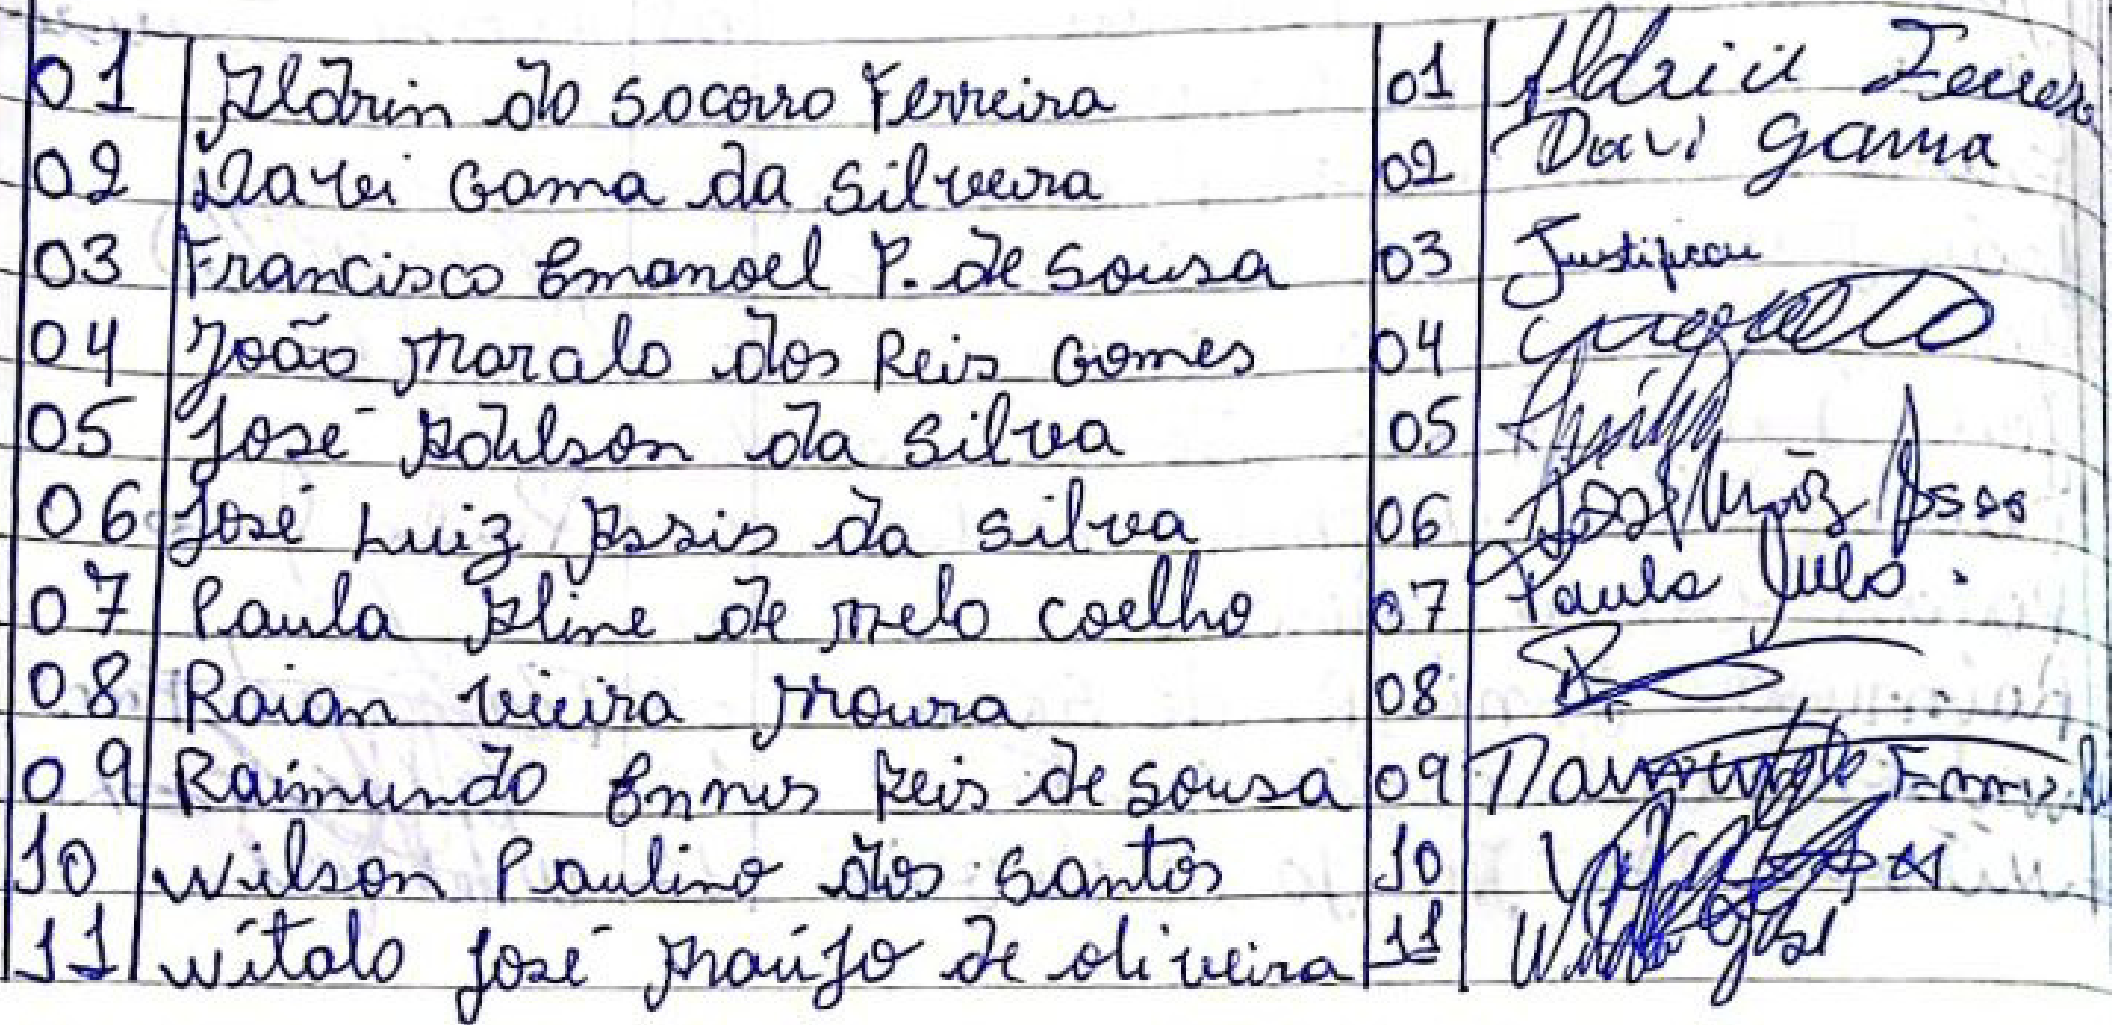 01 Aldrin do Socorro Ferreira 01 Aldrin Ferreira
02 Davi Gama da Silveira 02 Davi Gama
03 Francisco Emanoel P. de Sousa 03 Justificou
04 João Maralo dos Reis Gomes 04
05 José Adilson da Silva 05
06 José Luiz Assis da Silva 06 José Luiz Assis
07 Paula Aline de Melo Coelho 07 Paula
08 Raian Vieira Moura 08
09 Raimundo Ennes Reis de Sousa 09
10 Wilson Paulino dos Santos 10
11 Witalo José Araújo de Oliveira 11 José